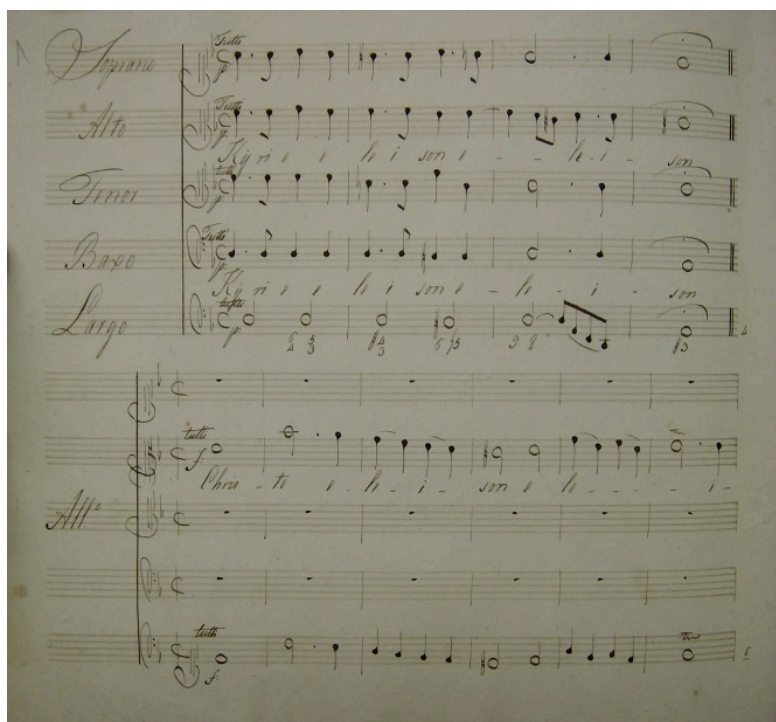 Soprano Tutti
p.
Alto Tutti
Ky ri e e le i son e - - le - i - son
Tenor tutti
p.
Baxo Tutti
p.
Ky ri e e le i son e - le - i - son
Largo tutti
p.
6 5
4 3
9 8
tutti
f.
Chris - te e - le - i - son e le - - - - i -
All.o
tutti
f.